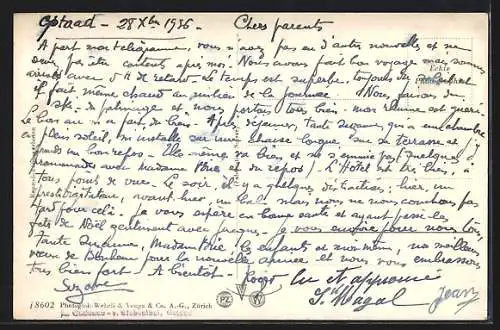 Gstaad - 28 Xbre 1936 - Chers parents
A part mon télégramme, vous n'avez pas eu d'autres nouvelles et ne
devez pas être contents après moi. Nous avons fait bon voyage mais sommes
arrivés avec 5 H de retard. Le temps est superbe, toujours du soleil et
il fait même chaud au milieu de la journée. Nous faisons du
ski, du patinage et nous portons tous bien - mon rhume est guéri
Le bon air n'a fait du bien. Après déjeuner, tante Suzanne, qui a une chambre
en plein soleil, s'installe sur une chaise longue, sur sa terrasse et
prends un bon repos. Elle-même va bien et ne s'ennuie pas (quelques
promenades avec Madame et du repos) L'Hôtel est très bien, à
tous points de vue. Le soir, il y a quelques distractions, hier, un
prestidigitateur, avant hier, un bal mais nous ne nous couchons pas
tard pour cela. Je vous espère en bonne santé et ayant passé les
fêtes de Noël gentiment avec Jacques. Je vous envoie pour nous tous
tante Suzanne, Madame, les enfants et moi-même, nos meilleurs
vœux de Bonheur pour la nouvelle année et nous vous embrassons
tous bien fort. A bientôt. Roger
Suzanne
lu et approuvé
S. Magal
Jean
18602 Photogloh-Wehrli & Vouga & Co. A.-G., Zürich
PZ